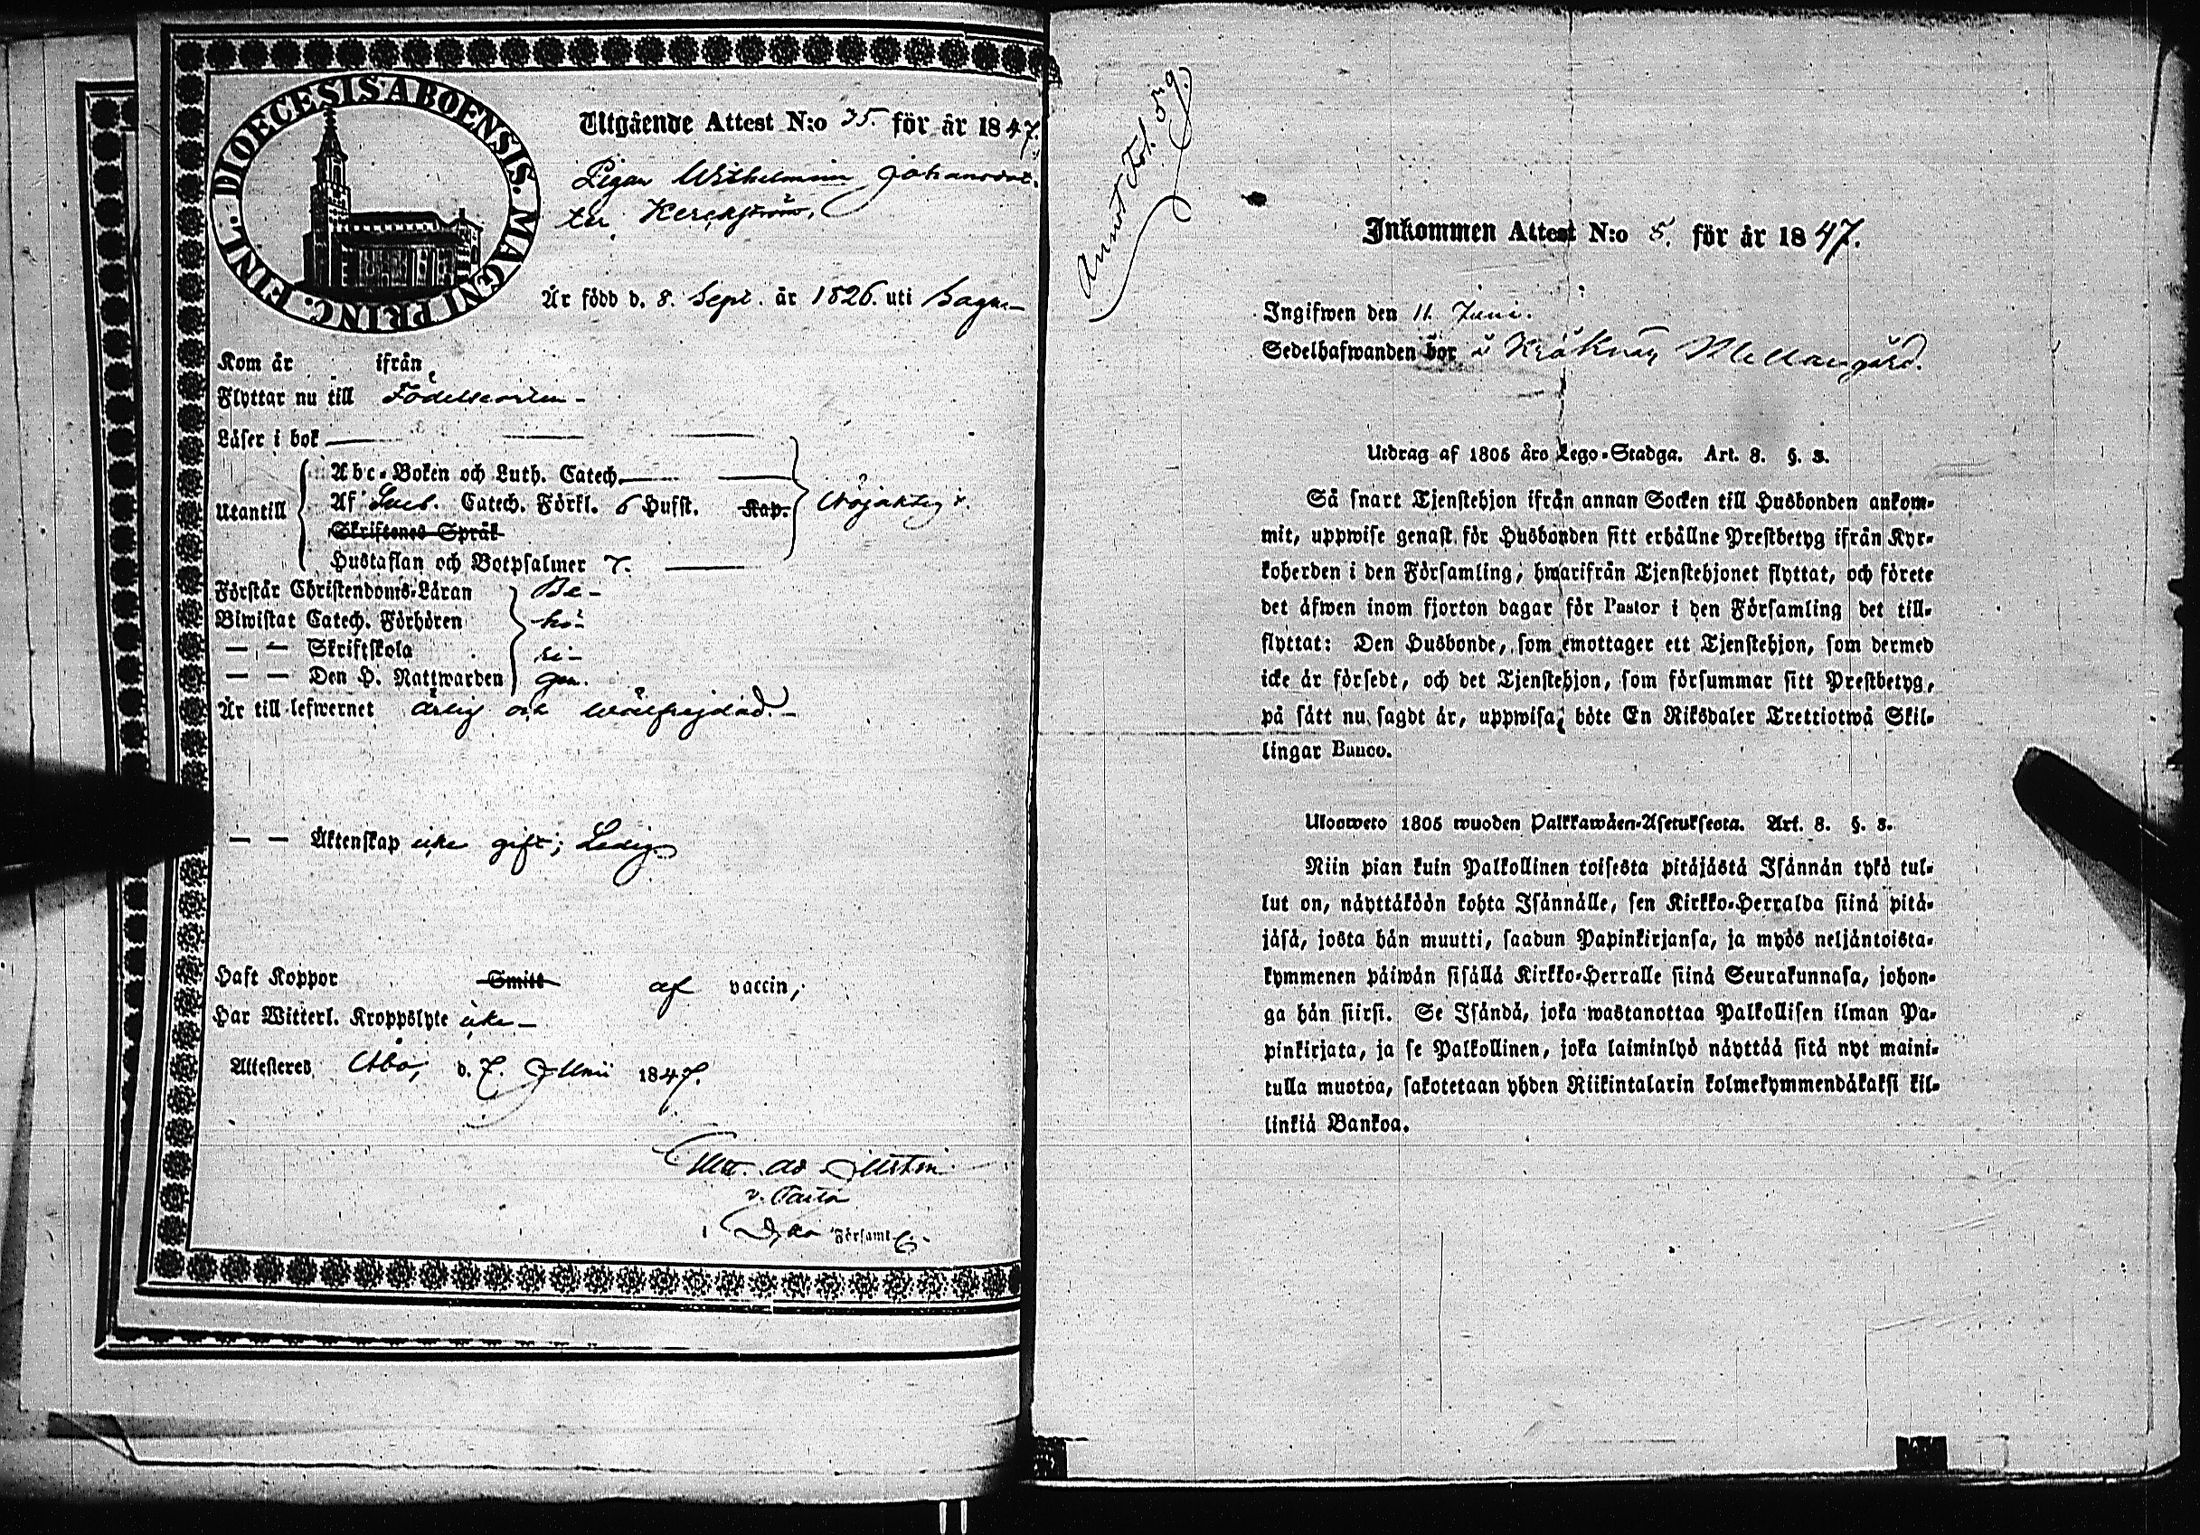 DIOECESIS ABOENSIS. MAGNI PRINC. FINL.
Utgående Attest N:o 35. för år 1847.
Pigan Wilhelmina Johansdot-
ter
Är född d. 8. Sept. år 1826. uti Sagu
Kom år ifrån
Flyttar nu till Födelseorten -
Läser i bok
Utantill
Abc-Boken och Luth. Catech.
Af Catech. Förkl. 6 Hufst. Kap. Nöjaktigt.
Skriftenes Språk
Hustaflan och Botpsalmer 7.
Förstår Christendoms-Läran Be-
Biwistat Catech. Förhören hö-
— — Skriftskola ri-
— — Den H. Nattwarden gen.
Är till lefwernet ärlig och wälfrejdad. -
— — Äktenskap icke gift; Ledig
Haft Koppor Smitt af vaccin,
Har Witterl. Kroppslyte icke -
Attesteras Åbo, d. 7. Junii 1847.
Församl.
Annot. Fol. 59.
Inkommen Attest N:o 8. för år 1847.
Ingifwen den 11. Juni.
Sedelhafwanden bor i Kråknäs Mellangård.
Utdrag af 1805 års Lego-Stadga. Art. 8. §. 3.
Så snart Tjenstehjon ifrån annan Socken till Husbonden ankom-
mit, uppwise genast för Husbonden sitt erhållne Prestbetyg ifrån Kyr-
koherden i den Församling, hwarifrån Tjenstehjonet flyttat, och förete
det äfwen inom fjorton dagar för Pastor i den Församling det till-
flyttat: Den Husbonde, som emottager ett Tjenstehjon, som dermed
icke är försedt, och det Tjenstehjon, som försummar sitt Prestbetyg,
på sätt nu sagdt är, uppwisa, böte En Riksdaler Trettiotwå Skil-
lingar Banco.
Ulosweto 1805 wuoden Palkkawäen-Asetuksesta. Art. 8. §. 3.
Niin pian kuin Palkollinen toisesta pitäjästä Isännän tykö tul-
lut on, näyttäköön kohta Isännälle, sen Kirkko-Herralda siinä pitä-
jäsä, josta hän muutti, saadun Papinkirjansa, ja myös neljäntoista-
kymmenen päiwän sisällä Kirkko-Herralle siinä Seurakunnasa, johon-
ga hän siirsi. Se Isändä, joka wastanottaa Palkollisen ilman Pa-
pinkirjata, ja se Palkollinen, joka laiminlyö näyttää sitä nyt maini-
tulla muotoa, sakotetaan yhden Riikintalarin kolmekymmendäkaksi kil-
linkiä Bankoa.